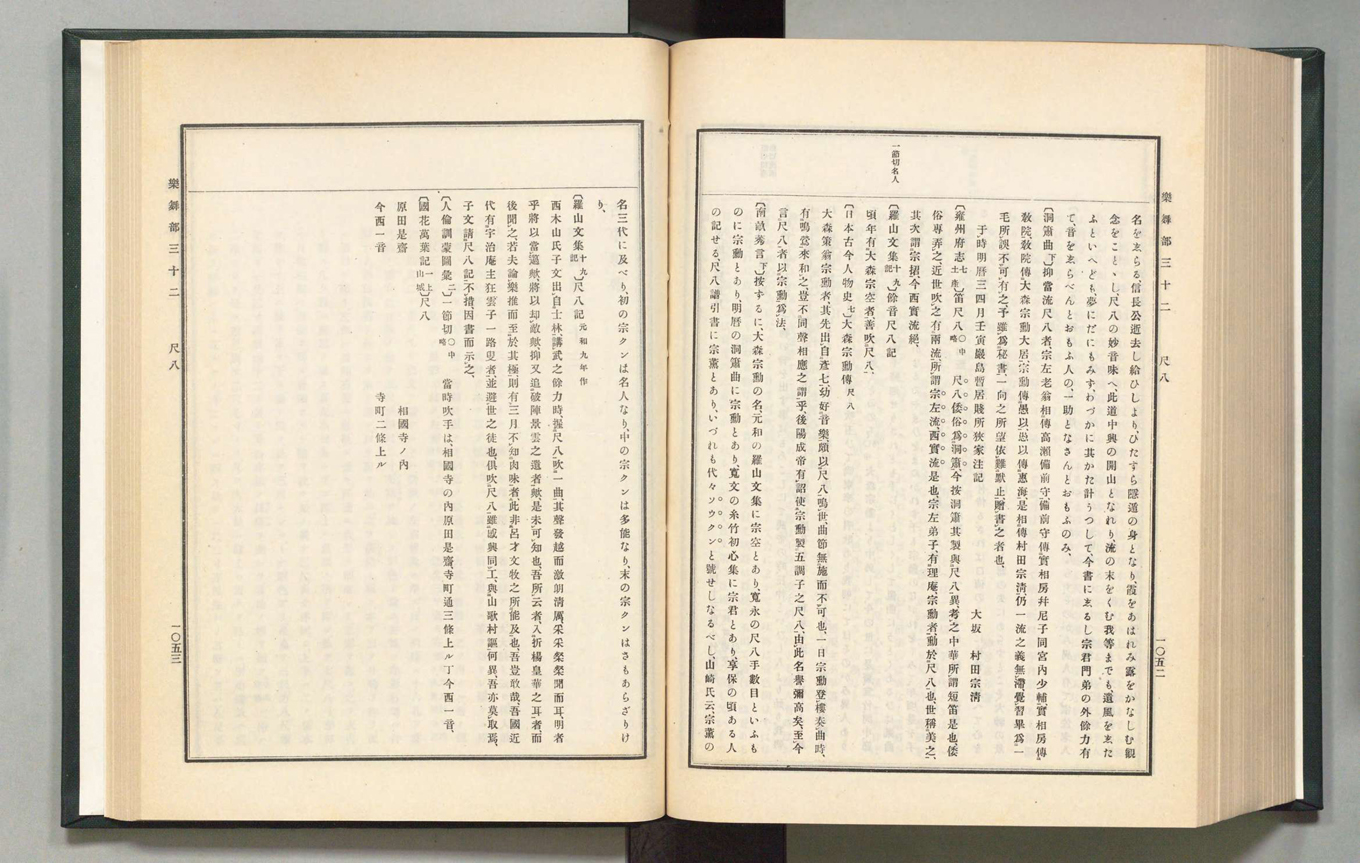 樂舞部三十二 尺八
一〇五二
一節切名人
名をゑらる信長公逝去し給ひしより、ひたすら隱遁の身となり、霞をあはれみ露をかなしむ觀
念をことゝし、尺八の妙音味へ、此道中興の開山となれり、流の末をくむ我等までも、遺風をゑた
ふといへども、夢にだにもみず、わづかに其かた計うつして、今書にゑるし宗君門弟の外餘力有
て、音をゑらべんとおもふ人の、一助となさんとおもふのみ、
〔洞簫曲下〕抑當流尺八者、宗左老翁相傳高瀨備前守、備前守傳實相房幷尼子同宮內少輔、實相房傳
敎院、敎院傳大森宗勳大居、宗勳傳愚以、愚以傳惠海、是相傳村田宗淸、仍一流之義無滯、覺習畢、爲一
毛所誤不可有之、予雖爲秘書、一向之所望依難默止、贈書之者也、
于時明曆三四月壬寅嚴島暫居賤所狹家注記 大坂 村田宗淸
〔雍州府志七土產〕笛尺八〇中略 尺八倭俗爲洞簫、今按洞簫其製與尺八異、考之中華所謂短笛是也、倭
俗專弄之、近世吹之有兩流、所謂宗左流、西實流是也、宗左弟子有理庵、宗勳者、勳於尺八也、世稱美之、
其次謂宗揩、今西實流絕、
〔羅山文集十九記〕餘音尺八記
頃年有大森宗空者、善吹尺八、
〔日本古今人物史七〕大森宗勳傳尺八
大森策翁宗勳者、其先出自彥七、幼好音樂、頗以尺八鳴世、曲節無施而不可也、一日宗勳登樓奏曲時、
有鳴鶯來和之、豈不同聲相應之謂乎、後陽成帝有詔使宗勳製五調子之尺八、由此名譽彌高矣、至今
言尺八者以宗勳爲法、
〔南畝莠言下〕按ずるに、大森宗勳の名、元和の羅山文集に宗空とあり、寬永の尺八手數目といふも
のに宗勳とあり、明曆の洞簫曲に宗勳とあり、寬文の糸竹初心集に宗君とあり、享保の頃ある人
の記せる、尺八譜引書に宗薰とあり、いづれも代々ソウクンと號せしなるべし、山崎氏云、宗薰の
名三代に及べり、初の宗クンは名人なり、中の宗クンは多能なり、末の宗クンはさもあらざりけ
り、
〔羅山文集十九記〕尺八記元和九年作
西木山氏子文出自士林、講武之餘力時握尺八、吹一曲、其聲發越而激朗淸厲、采采粲粲聞而耳、明者
乎、將以當逼歟、將以却敵歟、抑又追破陣景雲之遺者歟、是未可知也、吾所云者、入折楊皇華之耳者、而
後聞之、若夫論樂推而至於其極、則有三月不知肉味者、此非呂才文牧之所能及也、吾豈敢哉、吾國近
代有宇治庵主狂雲子一路叟者、並遯世之徒也、俱吹尺八、雖或異同工、與山歌村謳何異、吾亦莫取焉、
子文請尺八記、不措因書而示之、
〔人倫訓蒙圖彙二〕一節切〇中略 當時吹手は、相國寺の內原田是齋、寺町通三條上ル丁今西一音、
〔國花萬葉記一上山城〕尺八
原田是齋 相國寺ノ內
今西一音 寺町二條上ル
樂舞部三十二 尺八
一〇五三